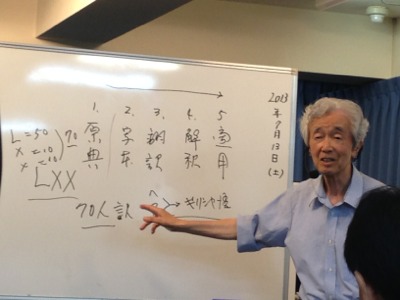 L=50
X=10
X=10
70
LXX
1. 原典
2. 写本
3. 翻訳
4. 解釈
5 適用
2013年7月13日(土)
70人訳
→ギリシャ語